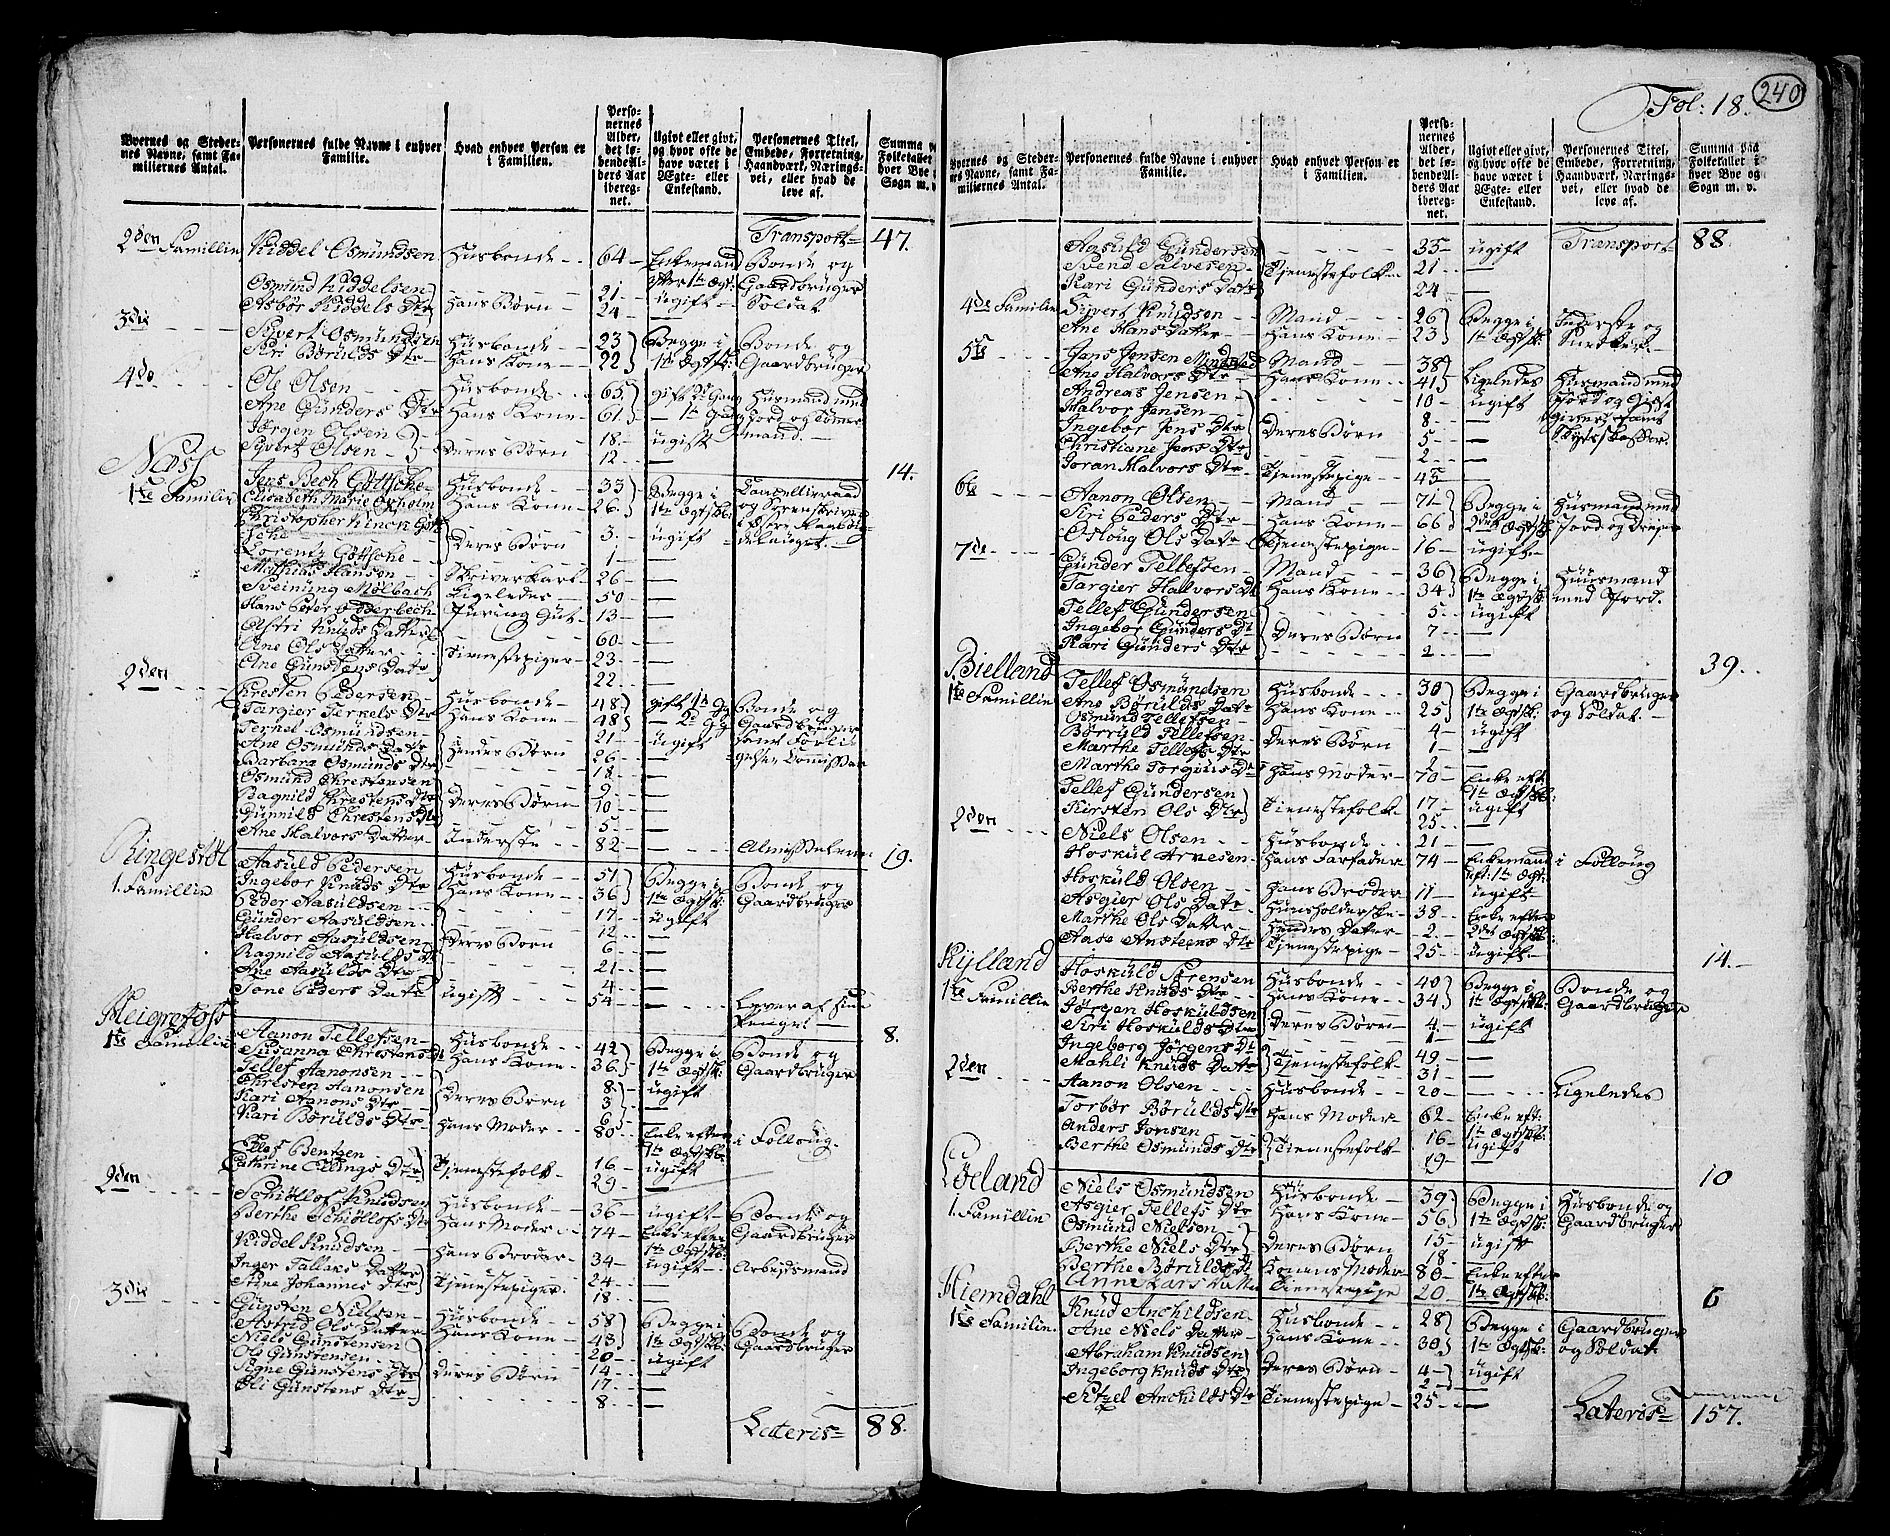 Byernes og Steder-
nes Navne, samt Fa-
miliernes Antal.
Personernes fulde Navne i enhver
Familie.
Hvad enhver Person er
i Familien.
Perso-
nernes
Alder,
det lø-
bende Al-
ders Aar
iberegnet.
Ugivt eller givt,
og hvor ofte de
have været i
Ægte- eller
Enkestand.
Personernes Titel,
Embede, Forretning,
Haandværk, Nærings-
vei, eller hvad de
leve af.
Summa paa
Folketallet i
hver Bye og
Sogn m. v.
Transport 47.
2den Familie Kiddel Osmundsen Husbonde 64 Enkemand Bonde og
efter 1te Ægt: Gaardbruger
Osmund Kiddelsen 21 ugift Soldat
Asbør Kiddels Dtr Hans Børn 24 —
3die Sÿvert Osmundsen Husbonde 23 Begge i Bonde og
Siri Børulds Dtr Hans Kone 22 1te Ægtsk: Gaardbruger
4de Ole Olsen Husbonde 65 gift 2. Gang Husmand med
Ane Gunders Dtr Hans Kone 61 1te Gang Jord og Tømer
Jørgen Olsen 18 ugift mand.
Sÿvert Olsen Deres Børn 12 —
Næss 14.
1te Familie Jens Bech Göttsche Husbonde 33 Begge i Cancelliraad
Elisabeth Marie Oxholm Hans Kone 26 1te Ægtskb: og Sorenskriver
Christopher Hinck Gött
sche 3 ugift
Lorentz Göttsche Deres Børn 1 —
Mathias Hansen Skriverkarl 26 —
Sveinung Mølbach Ligeledes 50 —
Hans Peder Odderbech 13 —
Astri Knuds Datter 60 —
Ane Ols Datter Tienestepiger 23 —
Ane Gunstens Datr 22 —
2den Chresten Pedersen Husbonde 48 gift 1te Gg Bonde og
Targier Terkels Dtr Hans Kone 48 2d Gg Gaardbruger
Terkel Osmundsen 21 ugift samt Forlii
Ane Osmunds Datr Hendes Børn 26 — gelses Comissær
Barbara Osmunds Dtr 18 —
Osmund Chrestensen 9 —
Ragnild Chrestens Dtr Deres Børn 10 —
Gunnild Chrestens Dtr 5 —
Ane Halvors Datter Inderste 82 — Almisselem 19.
Ringesrøl
1. Familie Aasuld Pedersen Husbonde 51 Begge i Bonde og
Ingebor Knuds Dtr Hans Kone 36 1te Ægtsk: Gaardbruger
Peder Aasuldsen 17 ugift
Gunder Aasuldsen 12 —
Halvor Aasuldsen Deres Børn 6 —
Ragnild Aasulds Dtr 21 —
Ane Aasulds Dtr 4 —
Tone Peders Datr ugift 54 — Lever af sine
Penge 8.
Heigrefoss
1te Familie Aanon Tellefsen Husbonde 42 Begge i Bonde og
Susanna Chrestens Dt Hans Kone 36 1te Ægtsk: Gaardbruger
Tellef Aanonsen 8 ugift
Chresten Aanonsen Deres Børn 3 —
Kari Aanons Dtr 6 —
Kari Børulds Dtr Hans Moder 80 Enke efter i Follóug.
1te Ægtskb:
Ellef Bentsen 16 ugift
Cathrine Ellings Dtr Tjenestefolk 29 —
2den Schiøllof Knudsen Husbonde 36 ugift Bonde og
Berthe Schiøllofs Dtr Hans Moder 74 Enke efter Gaardbruger
1te Ægtskb:
Kiddel Knudsen Hans Broder 34 ugift Arbeidsmand
Inger Tallaks Datter 24 —
Ane Johannes Dtr Tjenestepiger 18 —
3die Gunsten Nielsen Husbonde 58 Begge i Bonde og
Astrid Ols Datter Hans Kone 43 1te Ægtskb: Gaardbruger
Niels Gunstensen 20 ugift
Ole Gunstensen 14 —
Signe Gunstens Dtr Deres Børn 17 —
Oli Gunstens Dtr 8 —
Lateris 88.
Fol: 18. 240
Byernes og Steder-
nes Navne, samt Fa-
miliernes Antal.
Personernes fulde Navne i enhver
Familie.
Hvad enhver Person er
i Familien.
Perso-
nernes
Alder,
det lø-
bende Al-
ders Aar
iberegnet.
Ugivt eller givt,
og hvor ofte de
have været i
Ægte- eller
Enkestand.
Personernes Titel,
Embede, Forretning,
Haandværk, Nærings-
vei, eller hvad de
leve af.
Summa paa
Folketallet i
hver Bye og
Sogn m. v.
Aasuld Gundersen 35 ugift Transport 88.
Svend Salvesen Tjenestefolk 21 —
Kari Gunders Datr 24 —
4de Familie Sÿvert Knudsen Mand 26 Begge i Inderste og
Ane Hans Datter Hans Kone 23 1te Ægtsk:
5te Jens Jensen Mand 38 Ligeledes Husmand med
Ane Halvors Dtr Hans Kone 41
Andreas Jensen 10 ugift
Halvor Jensen 8 —
Ingebor Jens Dtr Deres Børn 5 —
Christiane Jens Dtr 2 —
Joran Halvors Dtr Tjenestepige 45 —
6te Aanon Olsen Mand 71 Begge i Husmand med
Siri Peders Dtr Hans Kone 66 2det Ægtsk:
Oslóug Ols Datr Tjenestepige 16 ugift
7de Gunder Tellefsen Mand 36 Begge i Huusmand
Targier Halvors Dt Hans Kone 34 1te Ægtsk: med Jord.
Tellef Gundersen 5 ugift
Ingebor Gunders Dtr Deres Børn 7 —
Kari Gunders Dtr 2 — 39.
Bielland
1te Familie Tellef Osmundsen Husbonde 30 Begge i Gaardbruger
Ane Børulds Datr Hans Kone 25 1te Ægtsk: og Soldat.
Osmund Tellefsen 4 ugift
Børruld Tellefsen Deres Børn 1 —
Marthe Tellefs Dtr 2 —
Marthe Torgius Dtr Hans Moder 70 Enke eft
1te Ægtskb:
Tellef Gundersen 17 ugift
Kirsten Ols Dtr Tienestefolk 25 —
2den Niels Olsen Husbonde 21 —
Hoskul Arnesen Hans Farfader 74 Enkemand i Follóug
eft: 1te Ægt:
Hoskuld Olsen Hans Broder 11 ugift
Asgier Ols Datr Husholderske 38 Enke efter
Marthe Ols Datter Hendes Dater 2 2det Ægtsk:
Aase Ansteens Dtr Tjenestepige 25 ugift 14.
Kÿlland
1te Familie Hoskuld Sørensen Husbonde 40 Begge i Bonde og
Berthe Knuds Dtr Hans Kone 34 1te Ægtsk: Gaardbruger
Jørgen Hoskuldsen 4 ugift
Siri Hoskulds Dtr Deres Børn 1 —
Ingeborg Jørgens Dtr 49 —
Mahli Knuds Datr Tjenestefolk 31 —
2den Aanon Olsen Husbonde 20 — Ligeledes
Torbor Børulds Dtr Hans Moder 62 Enke eft:
1te Ægtskb:
Anders Jonsen 16 ugift
Berthe Osmunds Dtr Tienestefolk 19 — 10
Løland
1. Familie Niels Osmundsen Husbonde 39 Begge i Husbonde og
Asgier Tellefs Dtr Hans Kone 56 1te Ægtsk: Gaardbruger
Osmund Nielsen 15 ugift
Berthe Niels Dtr Deres Børn 18 —
Berthe Børulds Dt Konens Moder 80 Enke efter
Anne Lars Datter Tienestepige 20 1te Ægtskb: 6
Hiemdahl
1te Familie Knud Anchildsen Husbonde 28 Begge i Gaardbruger
Ane Niels Datter Hans Kone 30 1te Ægtsk: og Soldat.
Abraham Knudsen 4 ugift
Ingeborg Knuds Dtr Deres Børn 2 —
Anchilds Dtr Tienestepige 25 —
Lateris 157.